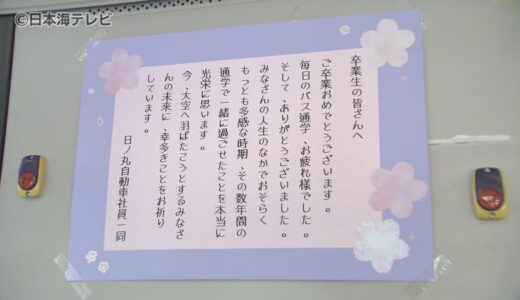 日本海テレビ
卒業生の皆さんへ
ご卒業おめでとうございます。
毎日のバス通学、お疲れ様でした。
そして、ありがとうございました。
みなさんの人生のなかでおそらく
もっとも多感な時期、その数年間の
通学で一緒に過ごせたことを本当に
光栄に思います。
今、大空へ羽ばたこうとするみなさ
んの未来に、幸多きことをお祈り
しています。
日ノ丸自動車社員一同